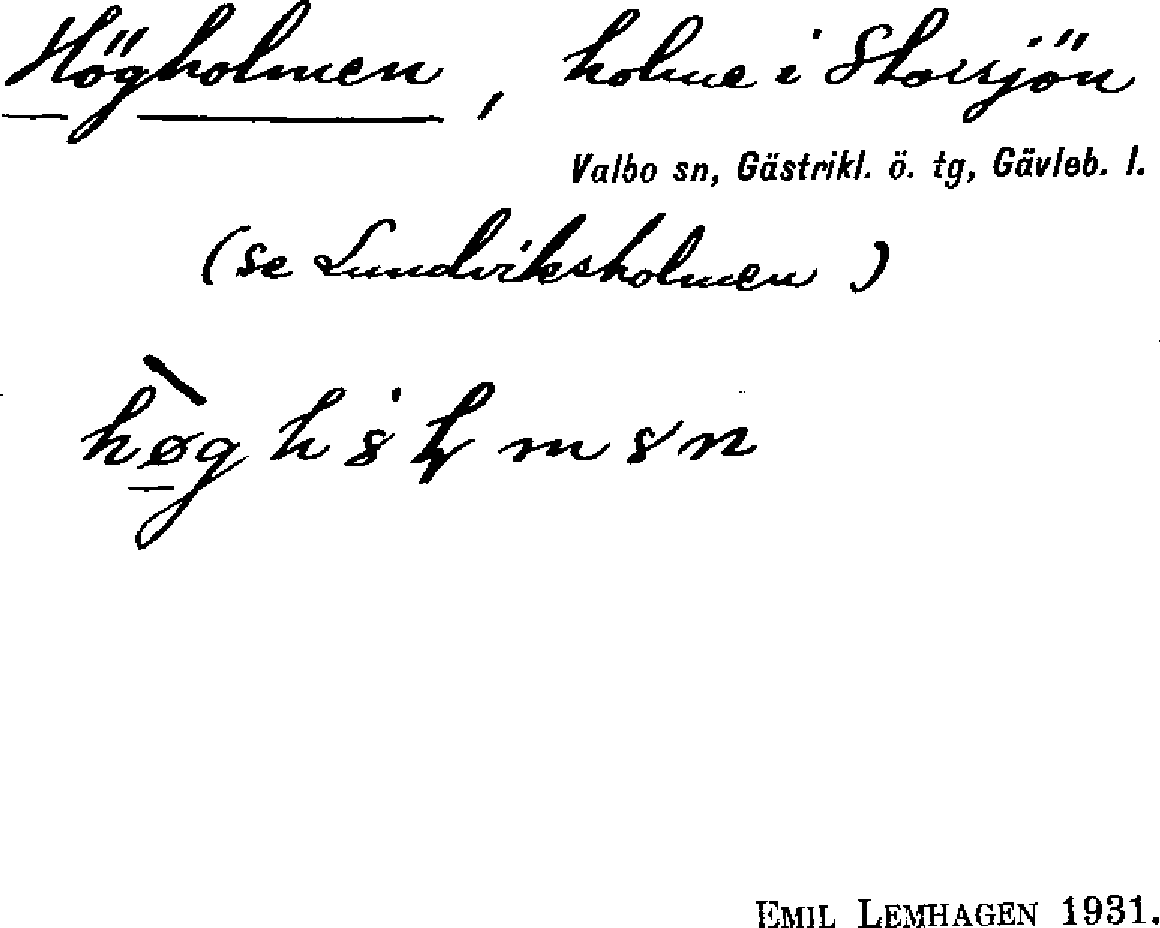 Högholmen, holme i Storsjön
Valbo sn, Gästrikl. ö. tg, Gävleb. l.
(se Lundviksholmen)
EMIL LEMHAGEN 1931.